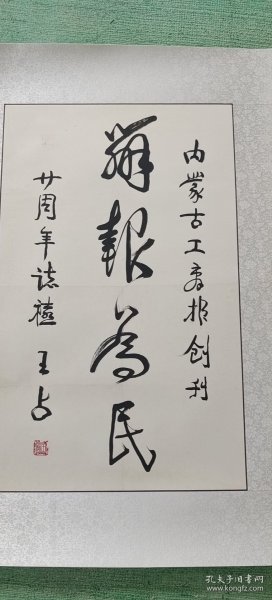 内蒙古工商报创刊
办报为民
廿周年志禧
王占
孔夫子旧书网